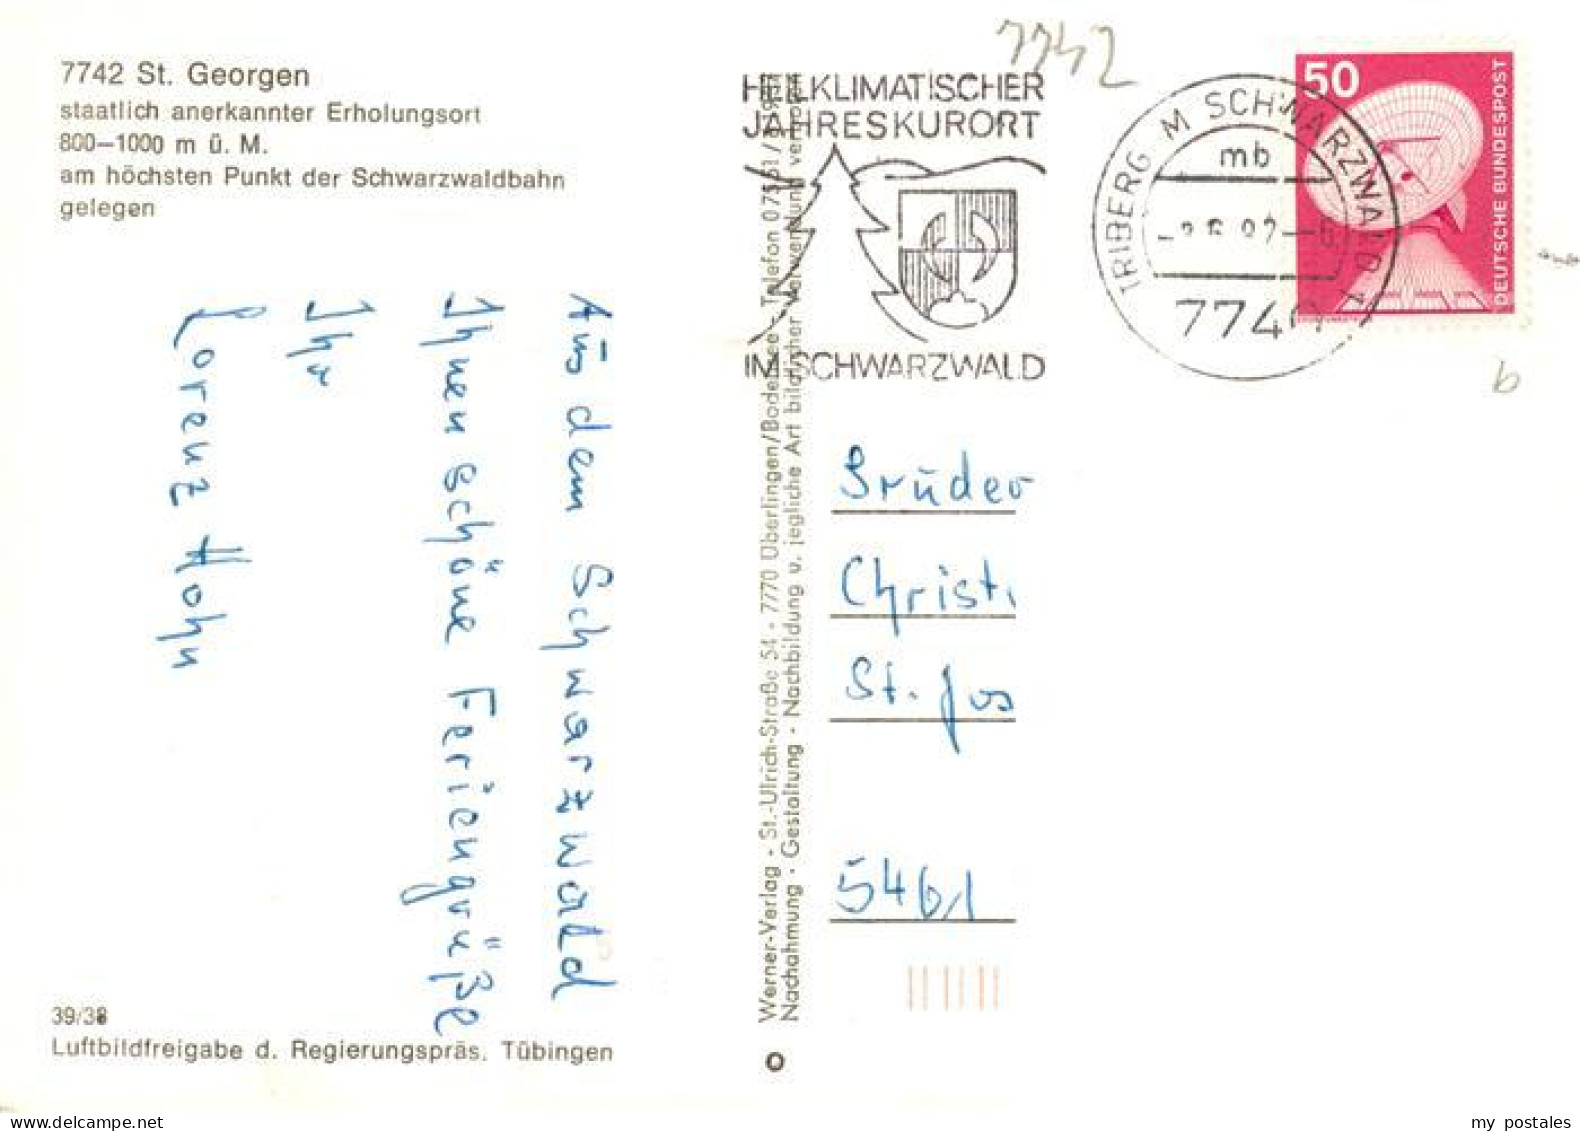 7742 St. Georgen
staatlich anerkannter Erholungsort
800–1000 m ü. M.
am höchsten Punkt der Schwarzwaldbahn
gelegen
Aus dem Schwarzwald
Ihnen schöne Feriengrüße
Ihr
Lorenz Hohn
39/38
Luftbildfreigabe d. Regierungspräs. Tübingen
Werner-Verlag · St.-Ulrich-Straße 54 · 7770 Überlingen/Bodensee · Telefon 07551/
Nachahmung · Gestaltung · Nachbildung u. jegliche Art bildlicher Verwendung
7742
HEILKLIMATISCHER
JAHRESKURORT
IM SCHWARZWALD
TRIBERG IM SCHWARZWALD 1
mb
774
50
DEUTSCHE BUNDESPOST
b
Brüder
Christ.
St. Jos
5461
delcampe.net
my postales